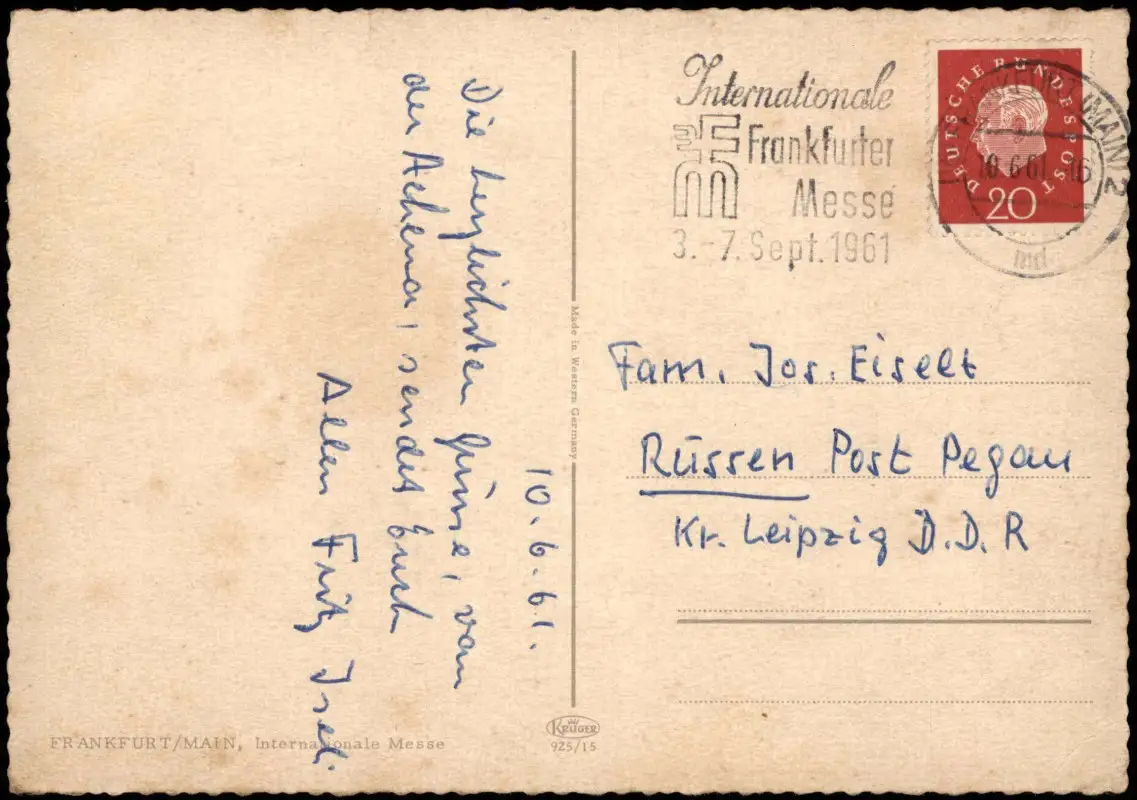 10.6.61.
Die herzlichsten Grüsse, von
der Achema, sendet Euch
Allen Fritz
Internationale
Frankfurter
Messe
3.-7. Sept. 1961
DEUTSCHE BUNDESPOST
20
FRANKFURT (MAIN) 2
10.6.61.-16
md
Fam. Jos. Eiselt
Rüssen Post Pegau
Kr. Leipzig D.D.R
Made in Western Germany
KRÜGER
925/15
FRANKFURT/MAIN, Internationale Messe